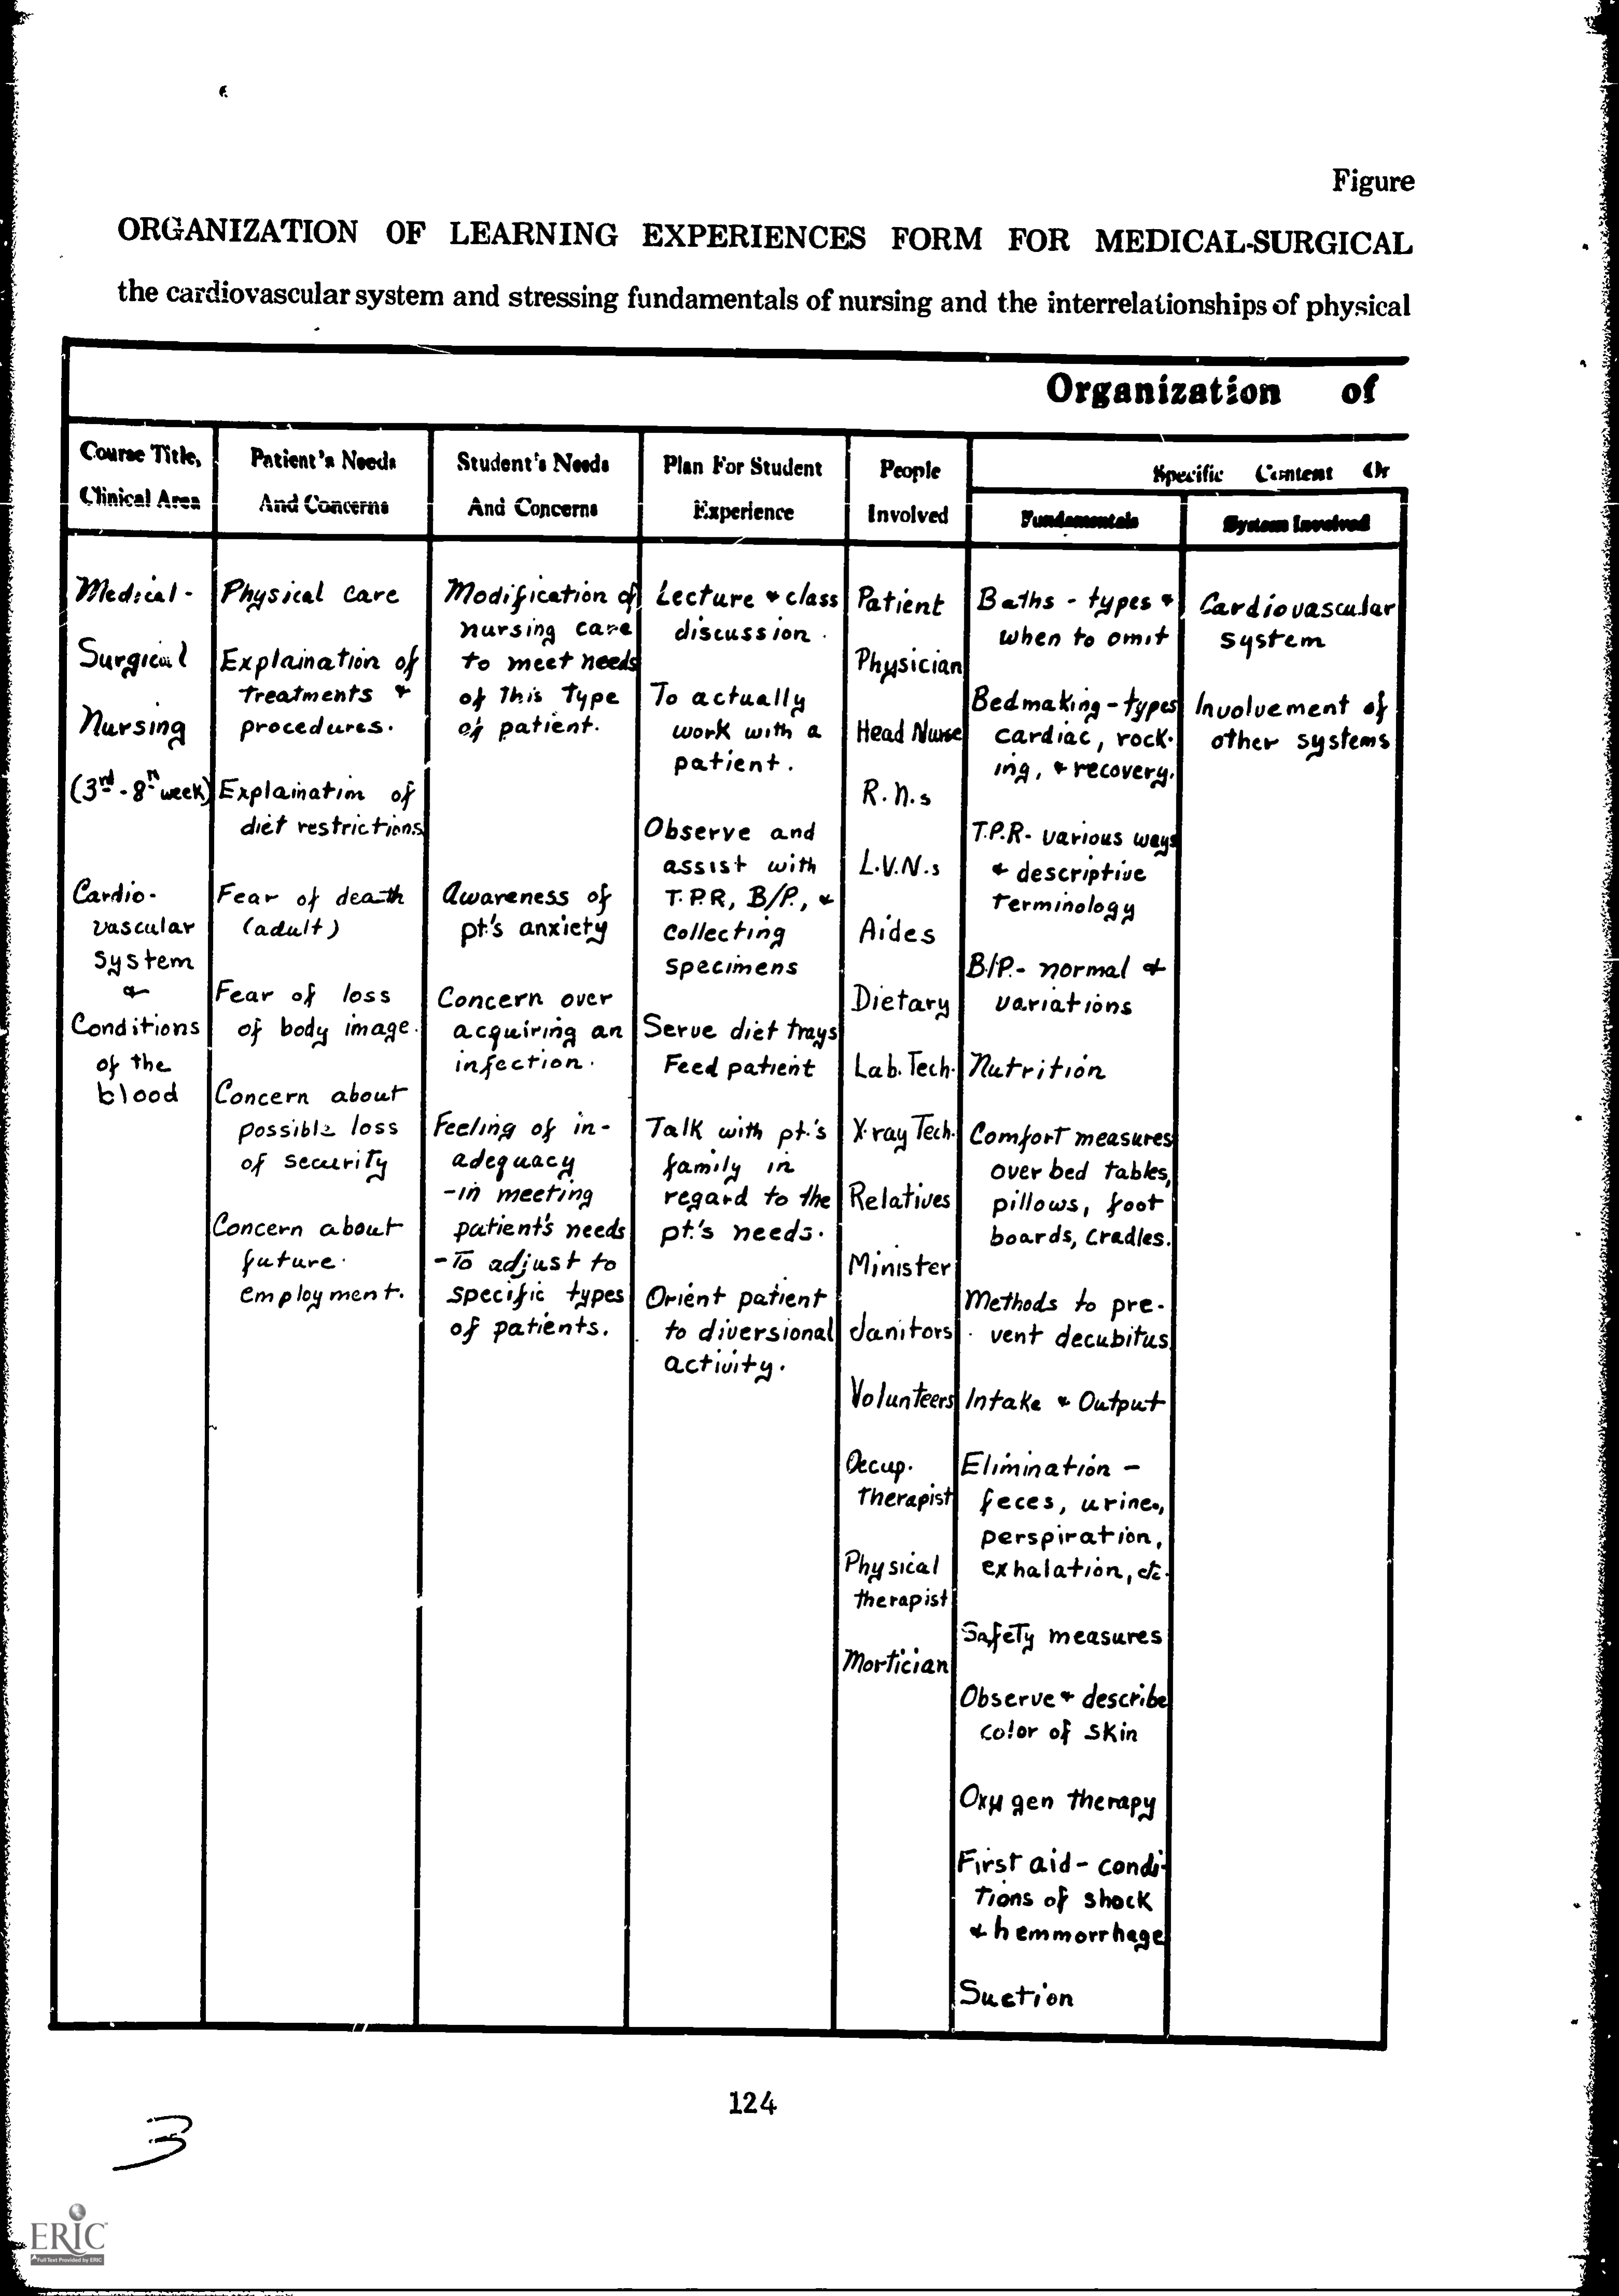 Figure
ORGANIZATION OF LEARNING EXPERIENCES FORM FOR MEDICAL-SURGICAL
the cardiovascular system and stressing fundamentals of nursing and the interrelationships of physical
Organization of
Course Title,
Clinical Area
Patient's Needs
And Concerns
Student's Needs
And Concerns
Plan For Student
Experience
People
Involved
Specific Content Or
Fundamentals
System Involved
Medical-
Surgical
Nursing
(3rd - 8th week)
Cardio-
vascular
system
&
Conditions
of the
blood
Physical care
Explaination of
treatments &
procedures.
Explaination of
diet restrictions
Fear of death
(adult)
Fear of loss
of body image.
Concern about
possible loss
of security
Concern about
future
employment.
Modification of
nursing care
to meet needs
of this type
of patient.
Awareness of
pt's anxiety
Concern over
acquiring an
infection.
Feeling of in-
adequacy
-in meeting
patient's needs
-To adjust to
specific types
of patients.
Lecture & class
discussion.
To actually
work with a
patient.
Observe and
assist with
T.P.R, B/P., &
collecting
specimens
Serve diet trays
Feed patient
Talk with pt.'s
family in
regard to the
pt.'s needs.
Orient patient
to diversional
activity.
Patient
Physician
Head Nurse
R.N.s
L.V.N.s
Aides
Dietary
Lab. Tech.
X-ray Tech.
Relatives
Minister
Janitors
Volunteers
Occup.
Therapist
Physical
therapist
Mortician
Baths - types &
when to omit
Bedmaking - types
cardiac, rock-
ing, & recovery.
T.P.R- various ways
& descriptive
terminology
B/P.- normal &
variations
Nutrition
Comfort measures
over bed tables,
pillows, foot
boards, cradles.
Methods to pre-
vent decubitus
Intake & Output
Elimination -
feces, urine,
perspiration,
exhalation, etc.
Safety measures
Observe & describe
color of skin
Oxygen therapy
First aid - condi-
tions of shock
& hemmorrhage
Suction
Cardiovascular
system
Involvement of
other systems
124
3
ERIC
Full Text Provided by ERIC